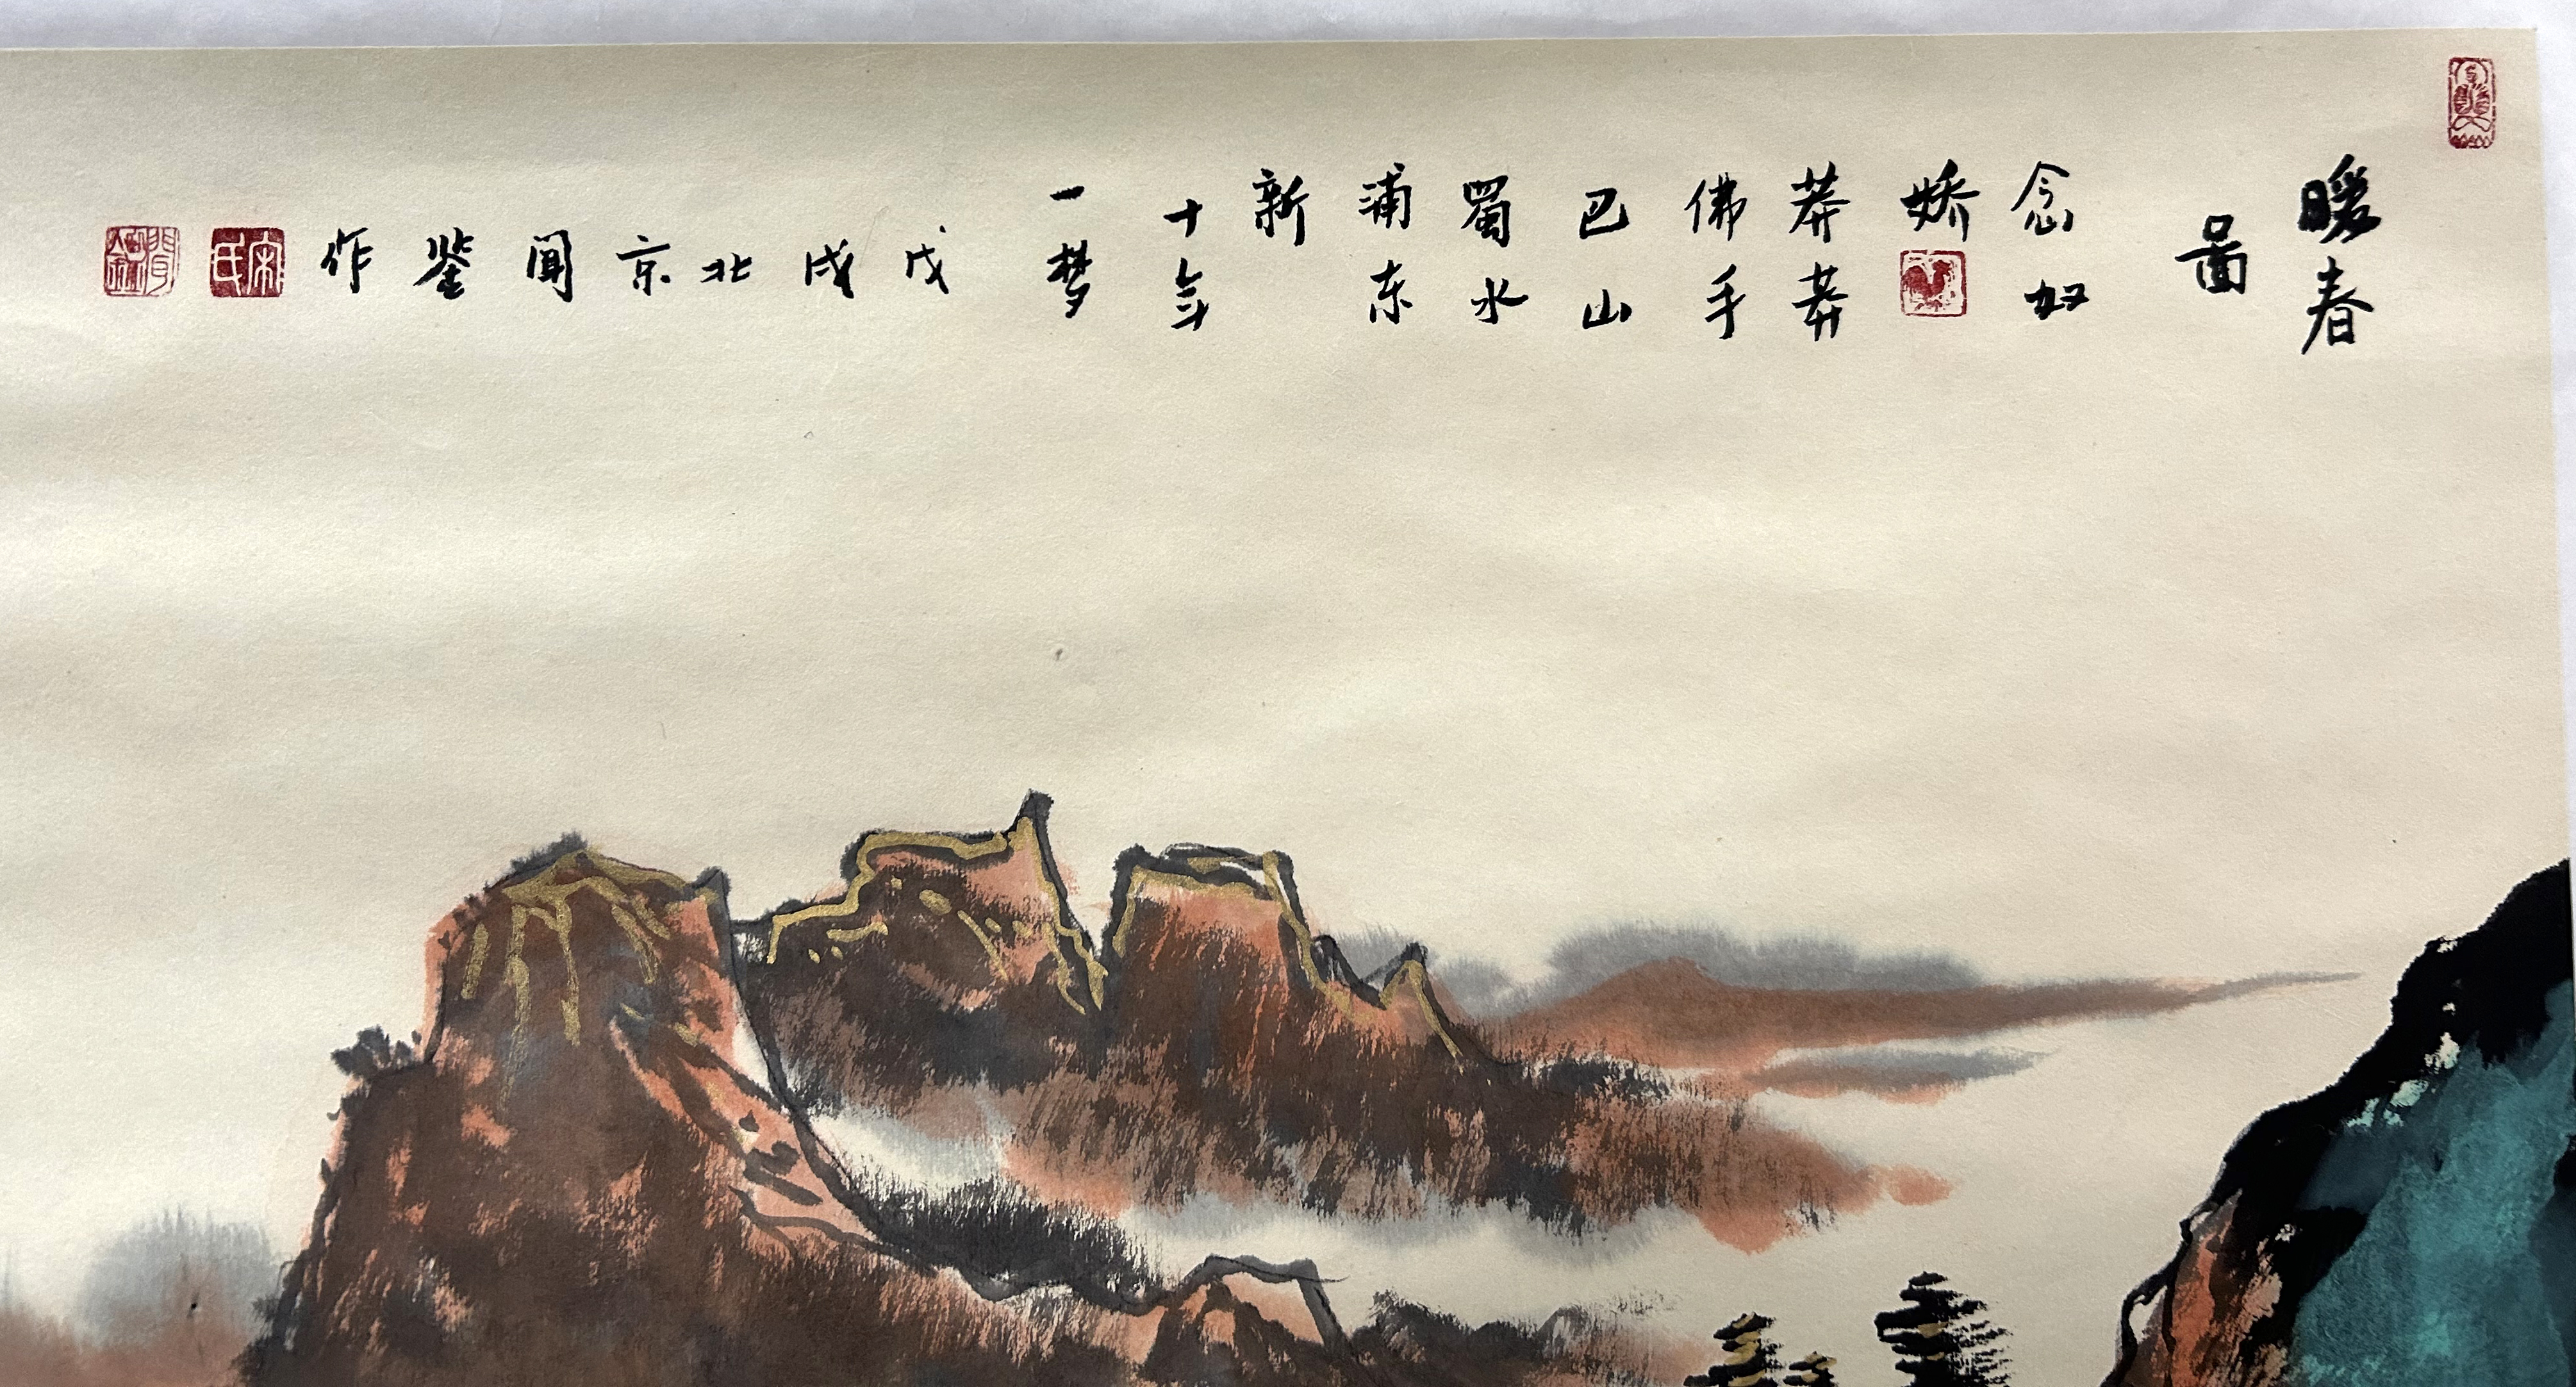 暖春
啚
念奴
娇
莽莽
佛手
巴山
蜀水
浦东
新
十年
一梦
戊
戌
北
京
闻
鉴
作
宋氏